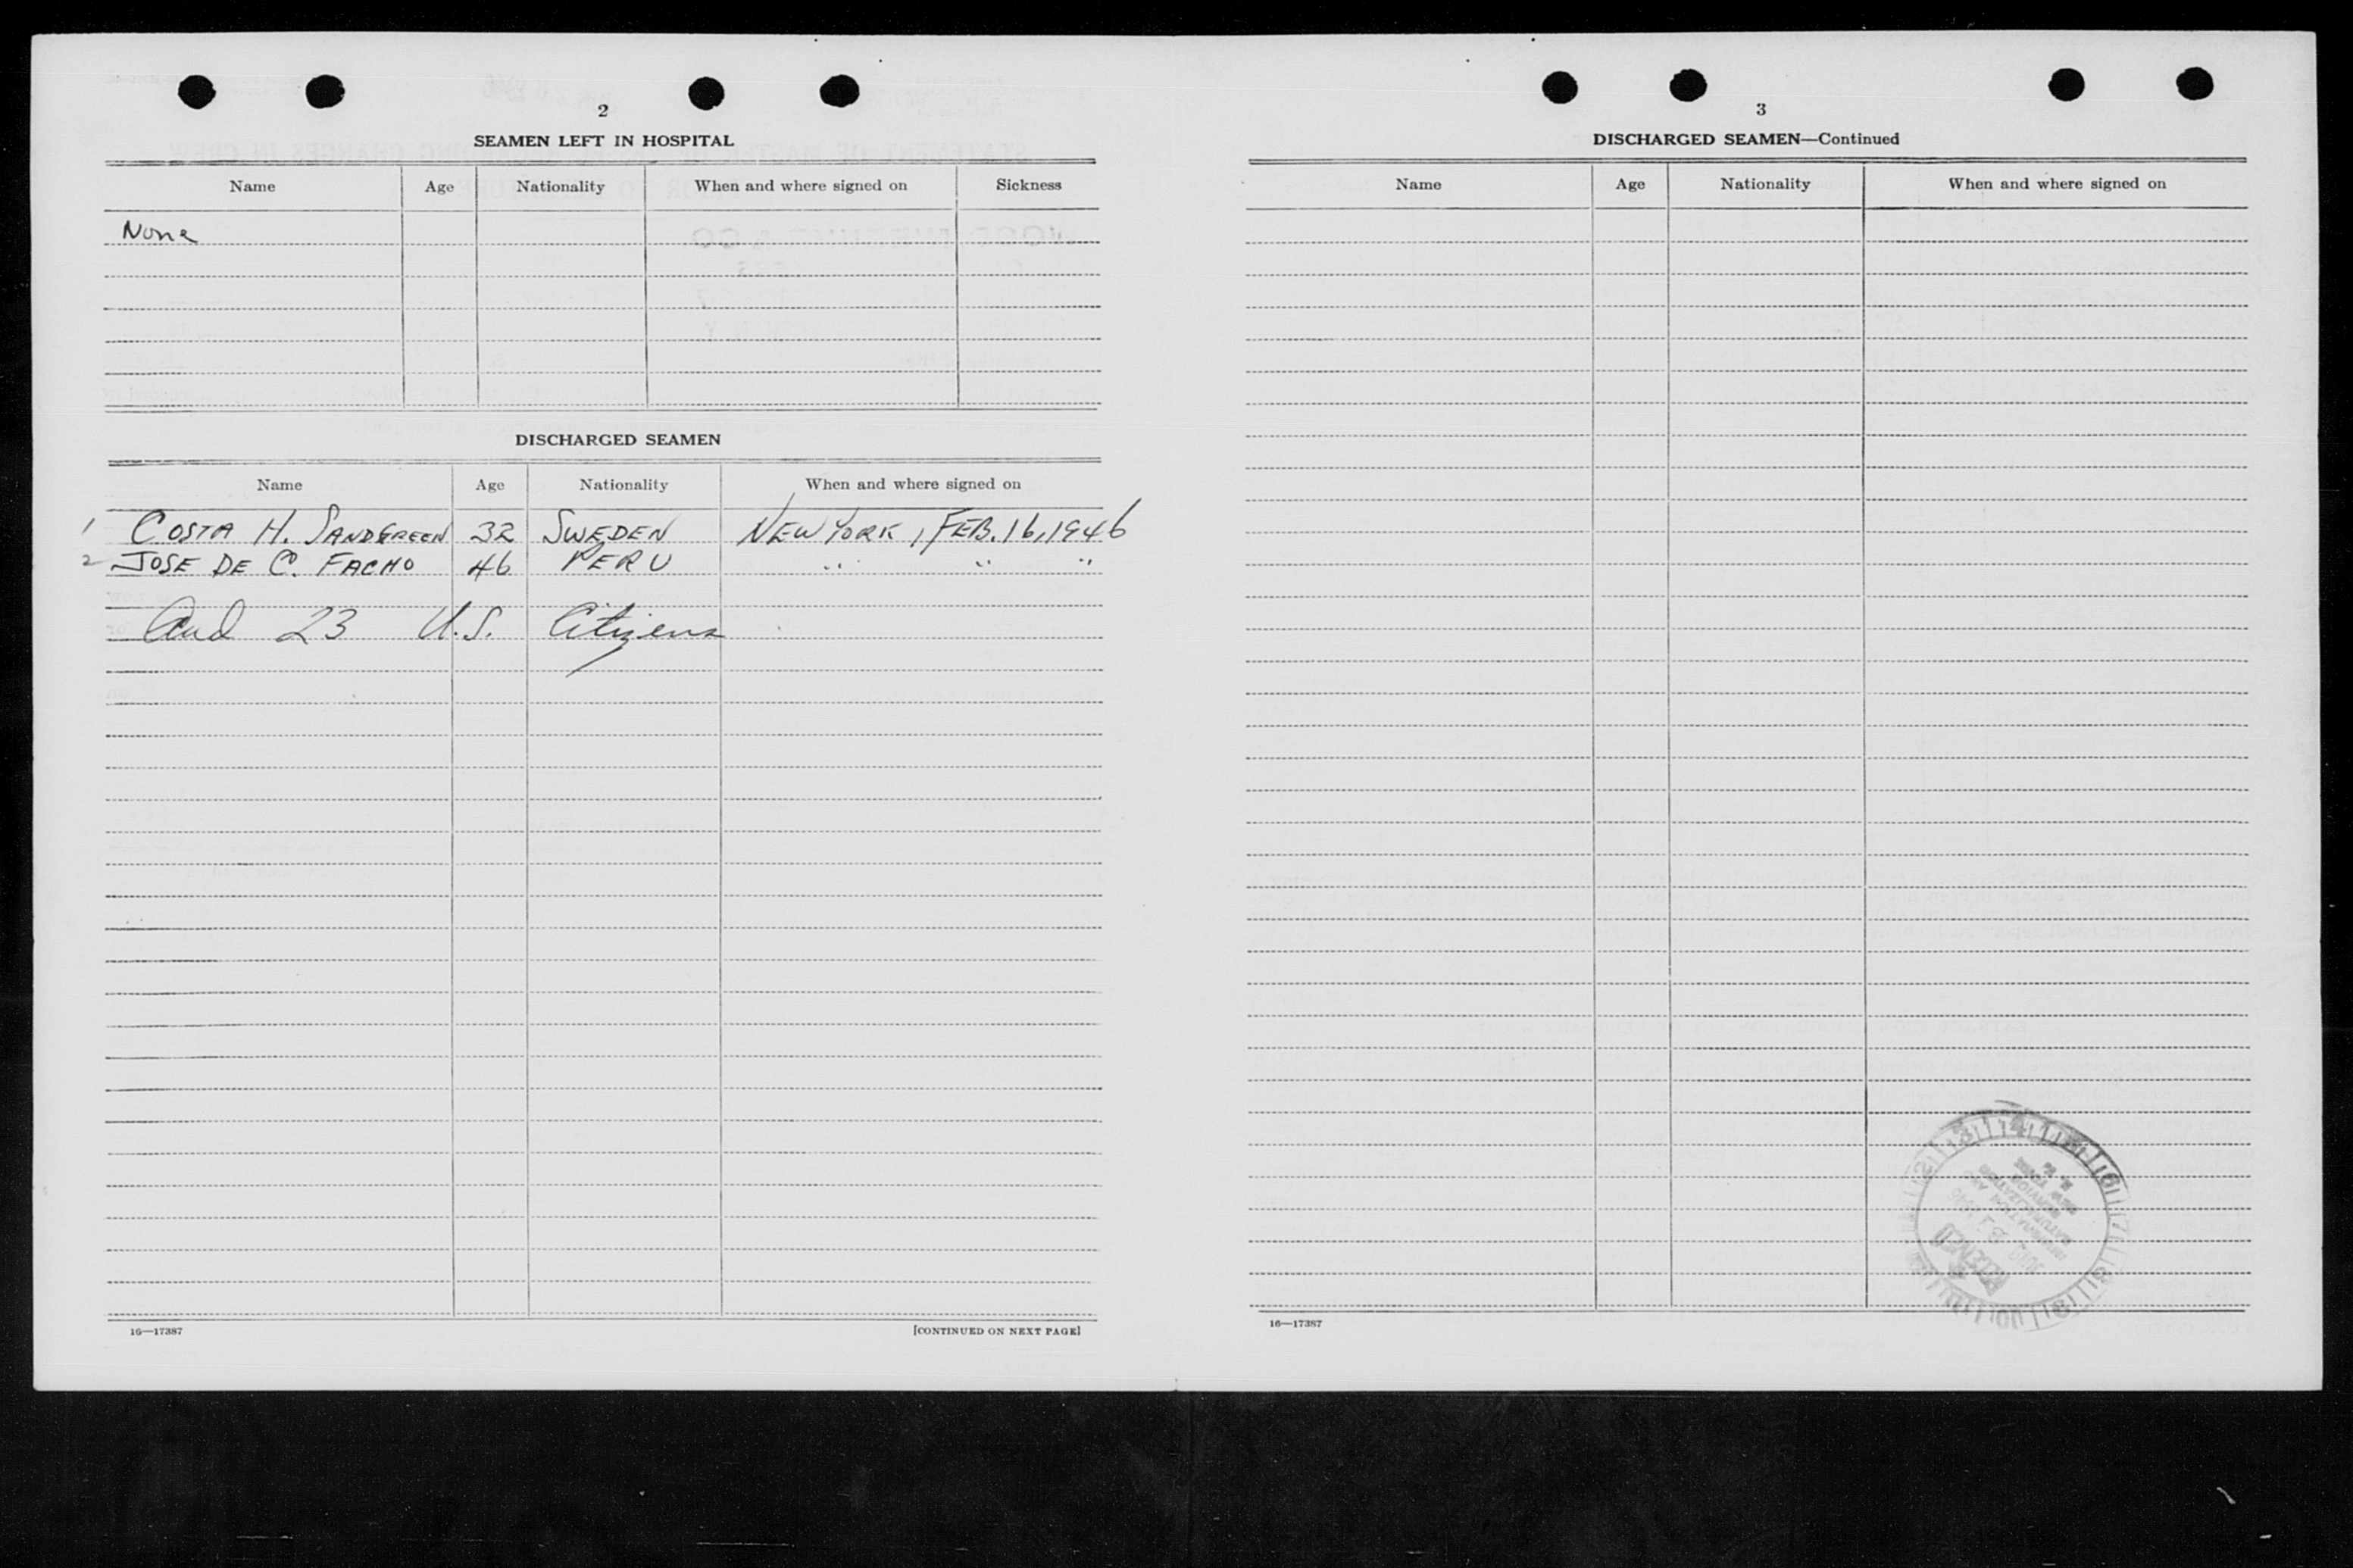 2
SEAMEN LEFT IN HOSPITAL
Name Age Nationality When and where signed on Sickness
None
DISCHARGED SEAMEN
Name Age Nationality When and where signed on
1 COSTA H. SANDGREEN 32 SWEDEN NEW YORK, FEB. 16, 1946
2 JOSE DE C. FACHO 46 PERU " " "
And 23 U.S. Citizens
16—17387 [CONTINUED ON NEXT PAGE]
3
DISCHARGED SEAMEN—Continued
Name Age Nationality When and where signed on
16—17387